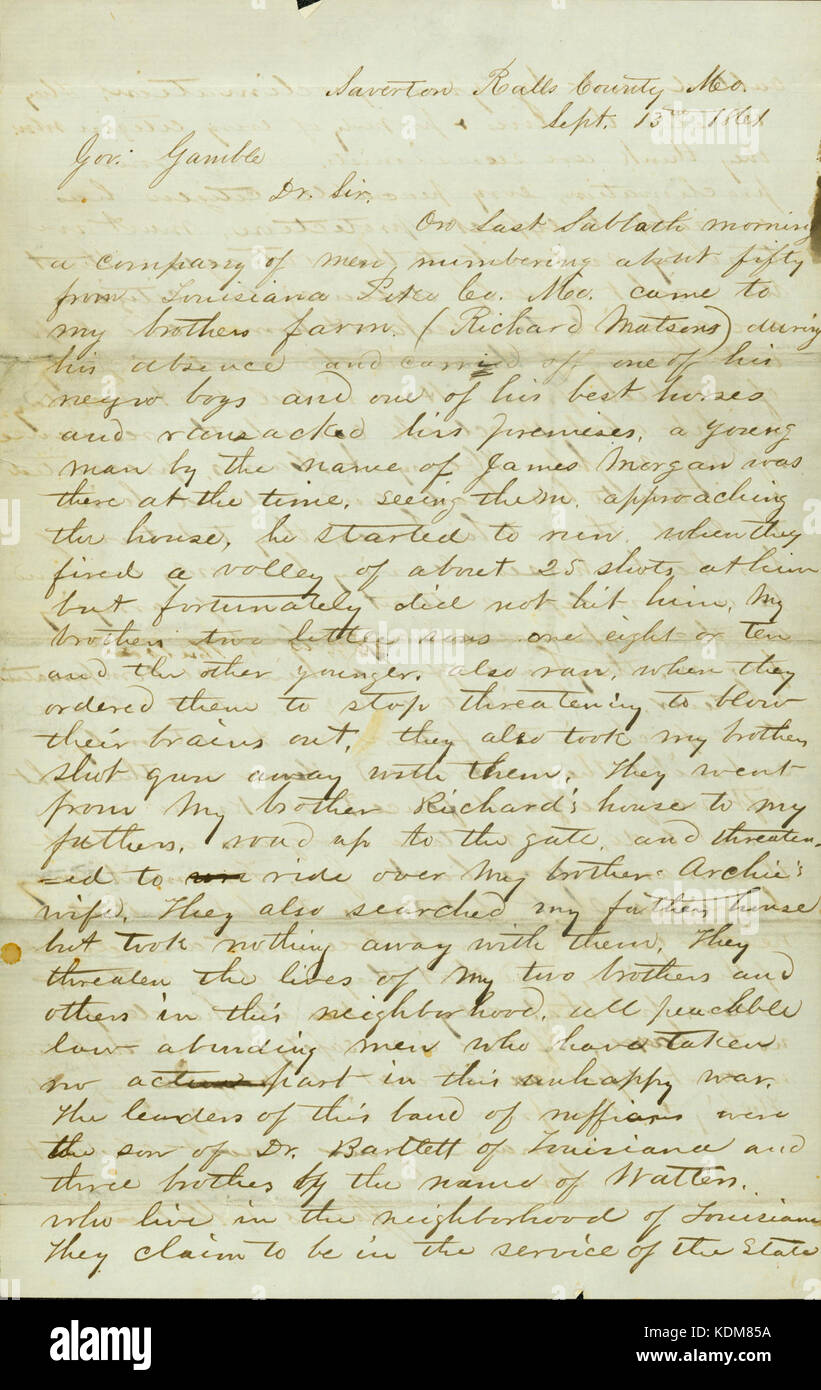 Saverton Ralls County Mo.
Sept. 13th 1861
Gov. Gamble
Dr. Sir.
On last Sabbath morning
a company of men, numbering about fifty
from Louisiana Pike Co. Mo. came to
my brothers farm. (Richard Matsons) during
his absence and carried off one of his
negro boys and one of his best horses
and ransacked his premises, a young
man by the name of James Morgan was
there at the time, seeing them approaching
the house, he started to run when they
fired a volley of about 25 shots at him
but fortunately did not hit him, My
brothers two little sons one eight or ten
and the other younger, also ran, when they
ordered them to stop threatening to blow
their brains out, they also took my brothers
shot gun away with them. They went
from My brother Richard's house to my
fathers, road up to the gate, and threaten-
=ed to ride over My brother Archie's
wife, They also searched my fathers house
but took nothing away with them. They
threaten the lives of My two brothers and
others in this neighborhood, all peachble
law abinding men who have taken
no action part in this unhappy war.
The leaders of this band of ruffians were
the son of Dr. Bartlett of Louisiana and
three brothers by the name of Watters,
who live in the neighborhood of Louisiana
They claim to be in the service of the State
alamy stock photo
alamy stock photo
alamy
KDM85A
www.alamy.com